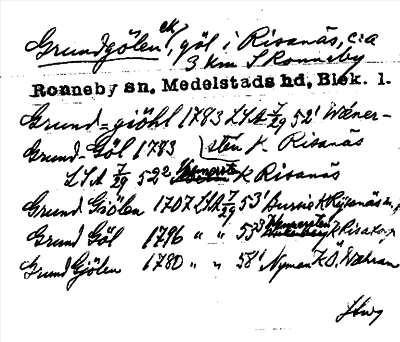 Grundgölen ek, göl i Risanäs, c:a
3 km S Ronneby
Ronneby sn, Medelstads hd, Blek. l.
Grund-giöhl 1783 LSA 7/29 52' Wæner-
Grund-Göl 1783 stén K Risanäs
LSA 7/29 52² K Risanäs
Grund Giölen 1707 LSA 7/29 53' K Risanäs
Grund Göl 1796 " " 53³
Grund Gjölen 1780 " " 58' Nyman K Ö.